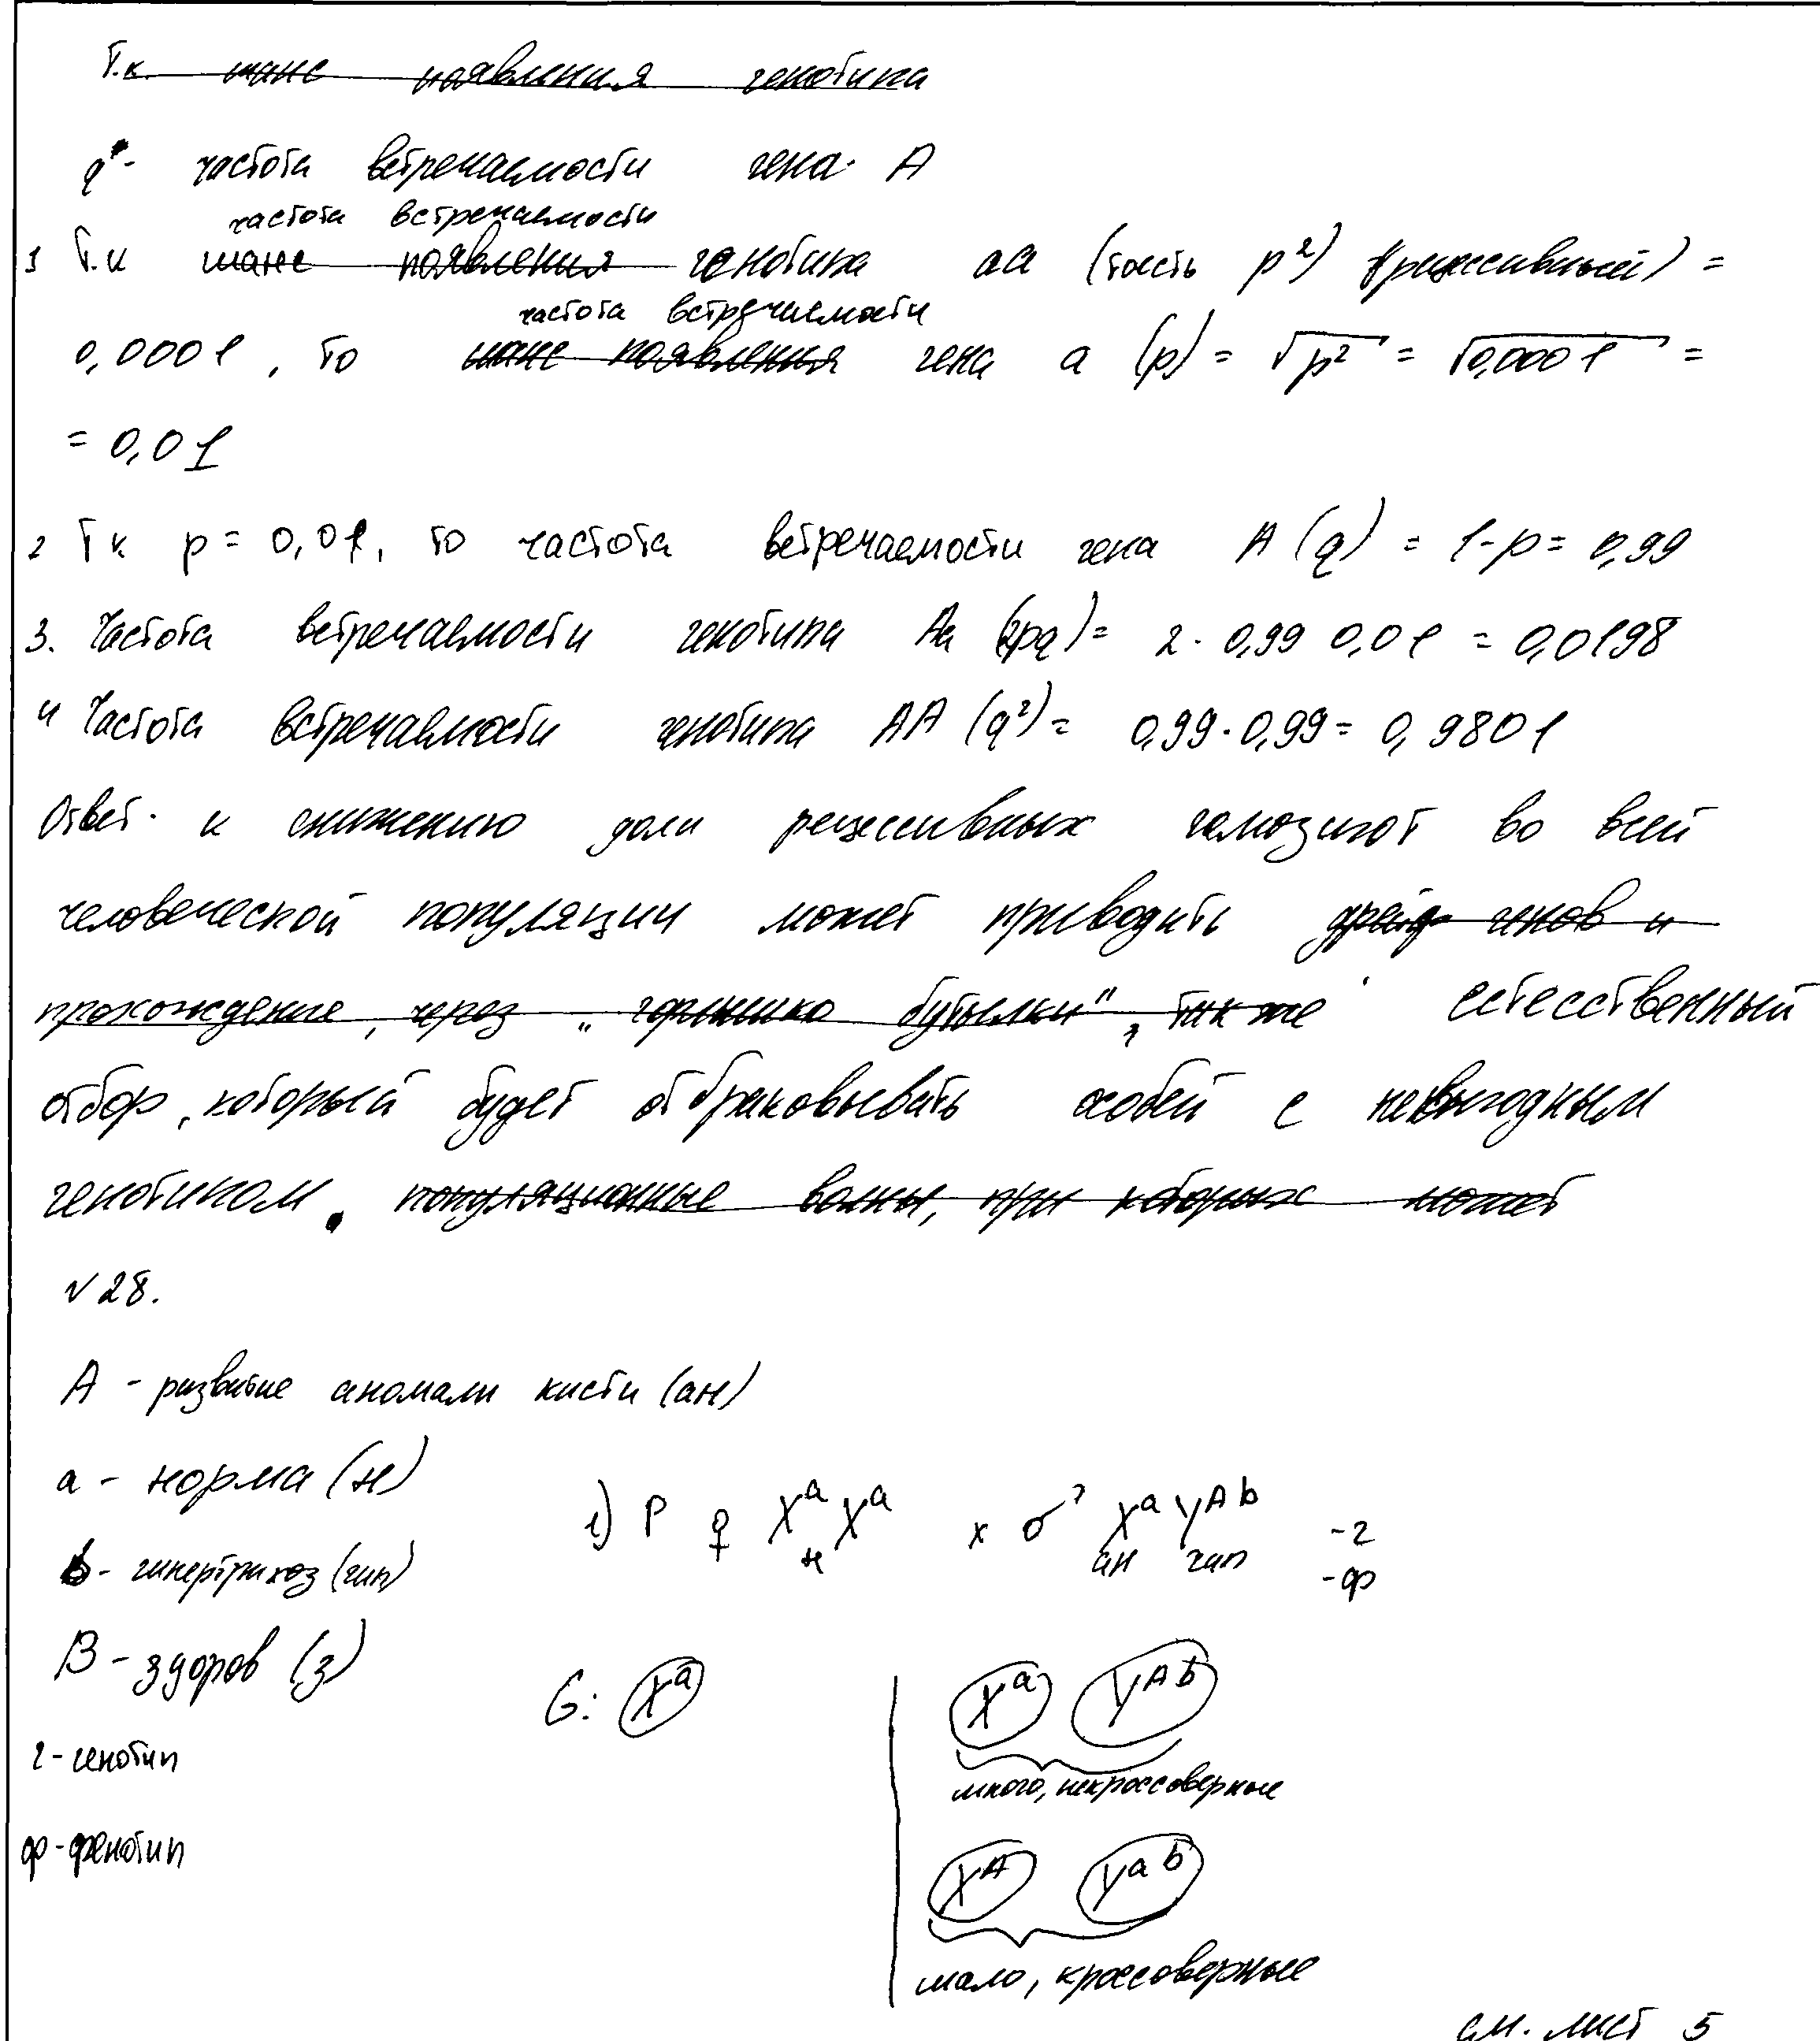 Т.к. шанс появления генотипа
q - частота встречаемости гена А
частота встречаемости
1 Т.к шанс появления генотипа аа (тоесть p²) (рецессивный) =
частота встречаемости
0,0001, то шанс появления гена а (p) = √p² = √0,0001 =
= 0,01
2 Т к p = 0,01, то частота встречаемости гена А (q) = 1-p = 0,99
3. Частота встречаемости генотипа Аа (2pq) = 2 · 0,99 0,01 = 0,0198
4 Частота встречаемости генотипа АА (q²) = 0,99 · 0,99 = 0,9801
Ответ· к снижению доли рецессивных гомозигот во всей
человеческой популяции может приводить дрейф генов и
прохождение, через „горлышко бутылки", так же естесственный
отбор, который будет отбраковывать особей с невыгодным
генотипом. популяционные волны, при которых может
№28.
А - развитие аномали кисти (ан)
а - норма (н)
1) P ♀ XᵃXᵃ x ♂ XᵃYᴬᵇ -г
н ан гип -ф
b - гипертрихоз (гип)
B - здоров (з)
G: Xᵃ | Xᵃ Yᴬᵇ
г - генотип
много, некроссоверные
ф - фенотип
Xᴬ Yᵃᵇ
мало, кроссоверные
см. лист 5